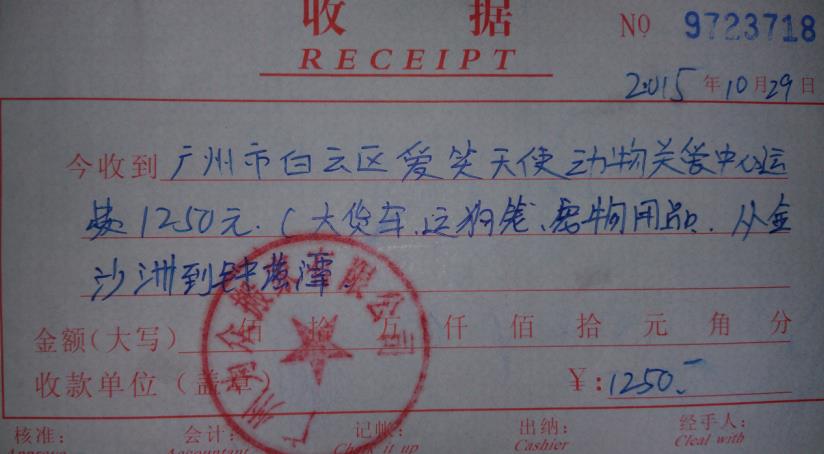 收 据
RECEIPT
№ 9723718
2015年10月29日
今收到 广州市白云区爱笑天使动物关爱中心运
费1250元.(大货车、运狗笼、宠物用品.从金
沙洲到钟落潭.
金额(大写) 佰 拾 万 仟 佰 拾 元 角 分
收款单位(盖章) ¥:1250.-
核准: 会计: 记帐: 出纳: 经手人:
Approve Accountant Chalk it up Cashier Cleal with
广州 众搬 有限公司